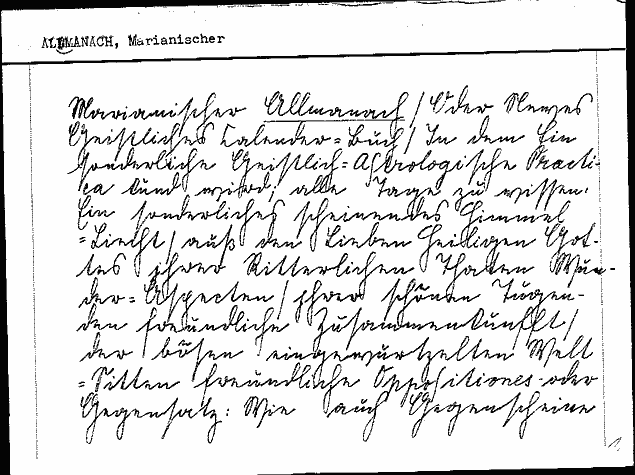 ALLMANACH, Marianischer
Marianischer Allmanach / Oder Newes
Geistliches Calender = Buch / In dem Ein
sonderliche Geistlich = Astrologische Practi-
ca kund wird; alle Tage zu wissen.
Ein sonderliches scheinendes Himmel
= Liecht / auß den Lieben Heiligen Got-
tes ihrer Ritterlichen Thaten Wun-
der = Aspecten / ihrer schönen Tugen-
den freundliche Zusammenkunfft /
der bösen eingewurtzelten Welt
= Sitten freundliche Oppositiones oder
Gegensatz: Wie auch Gegenscheine
1,